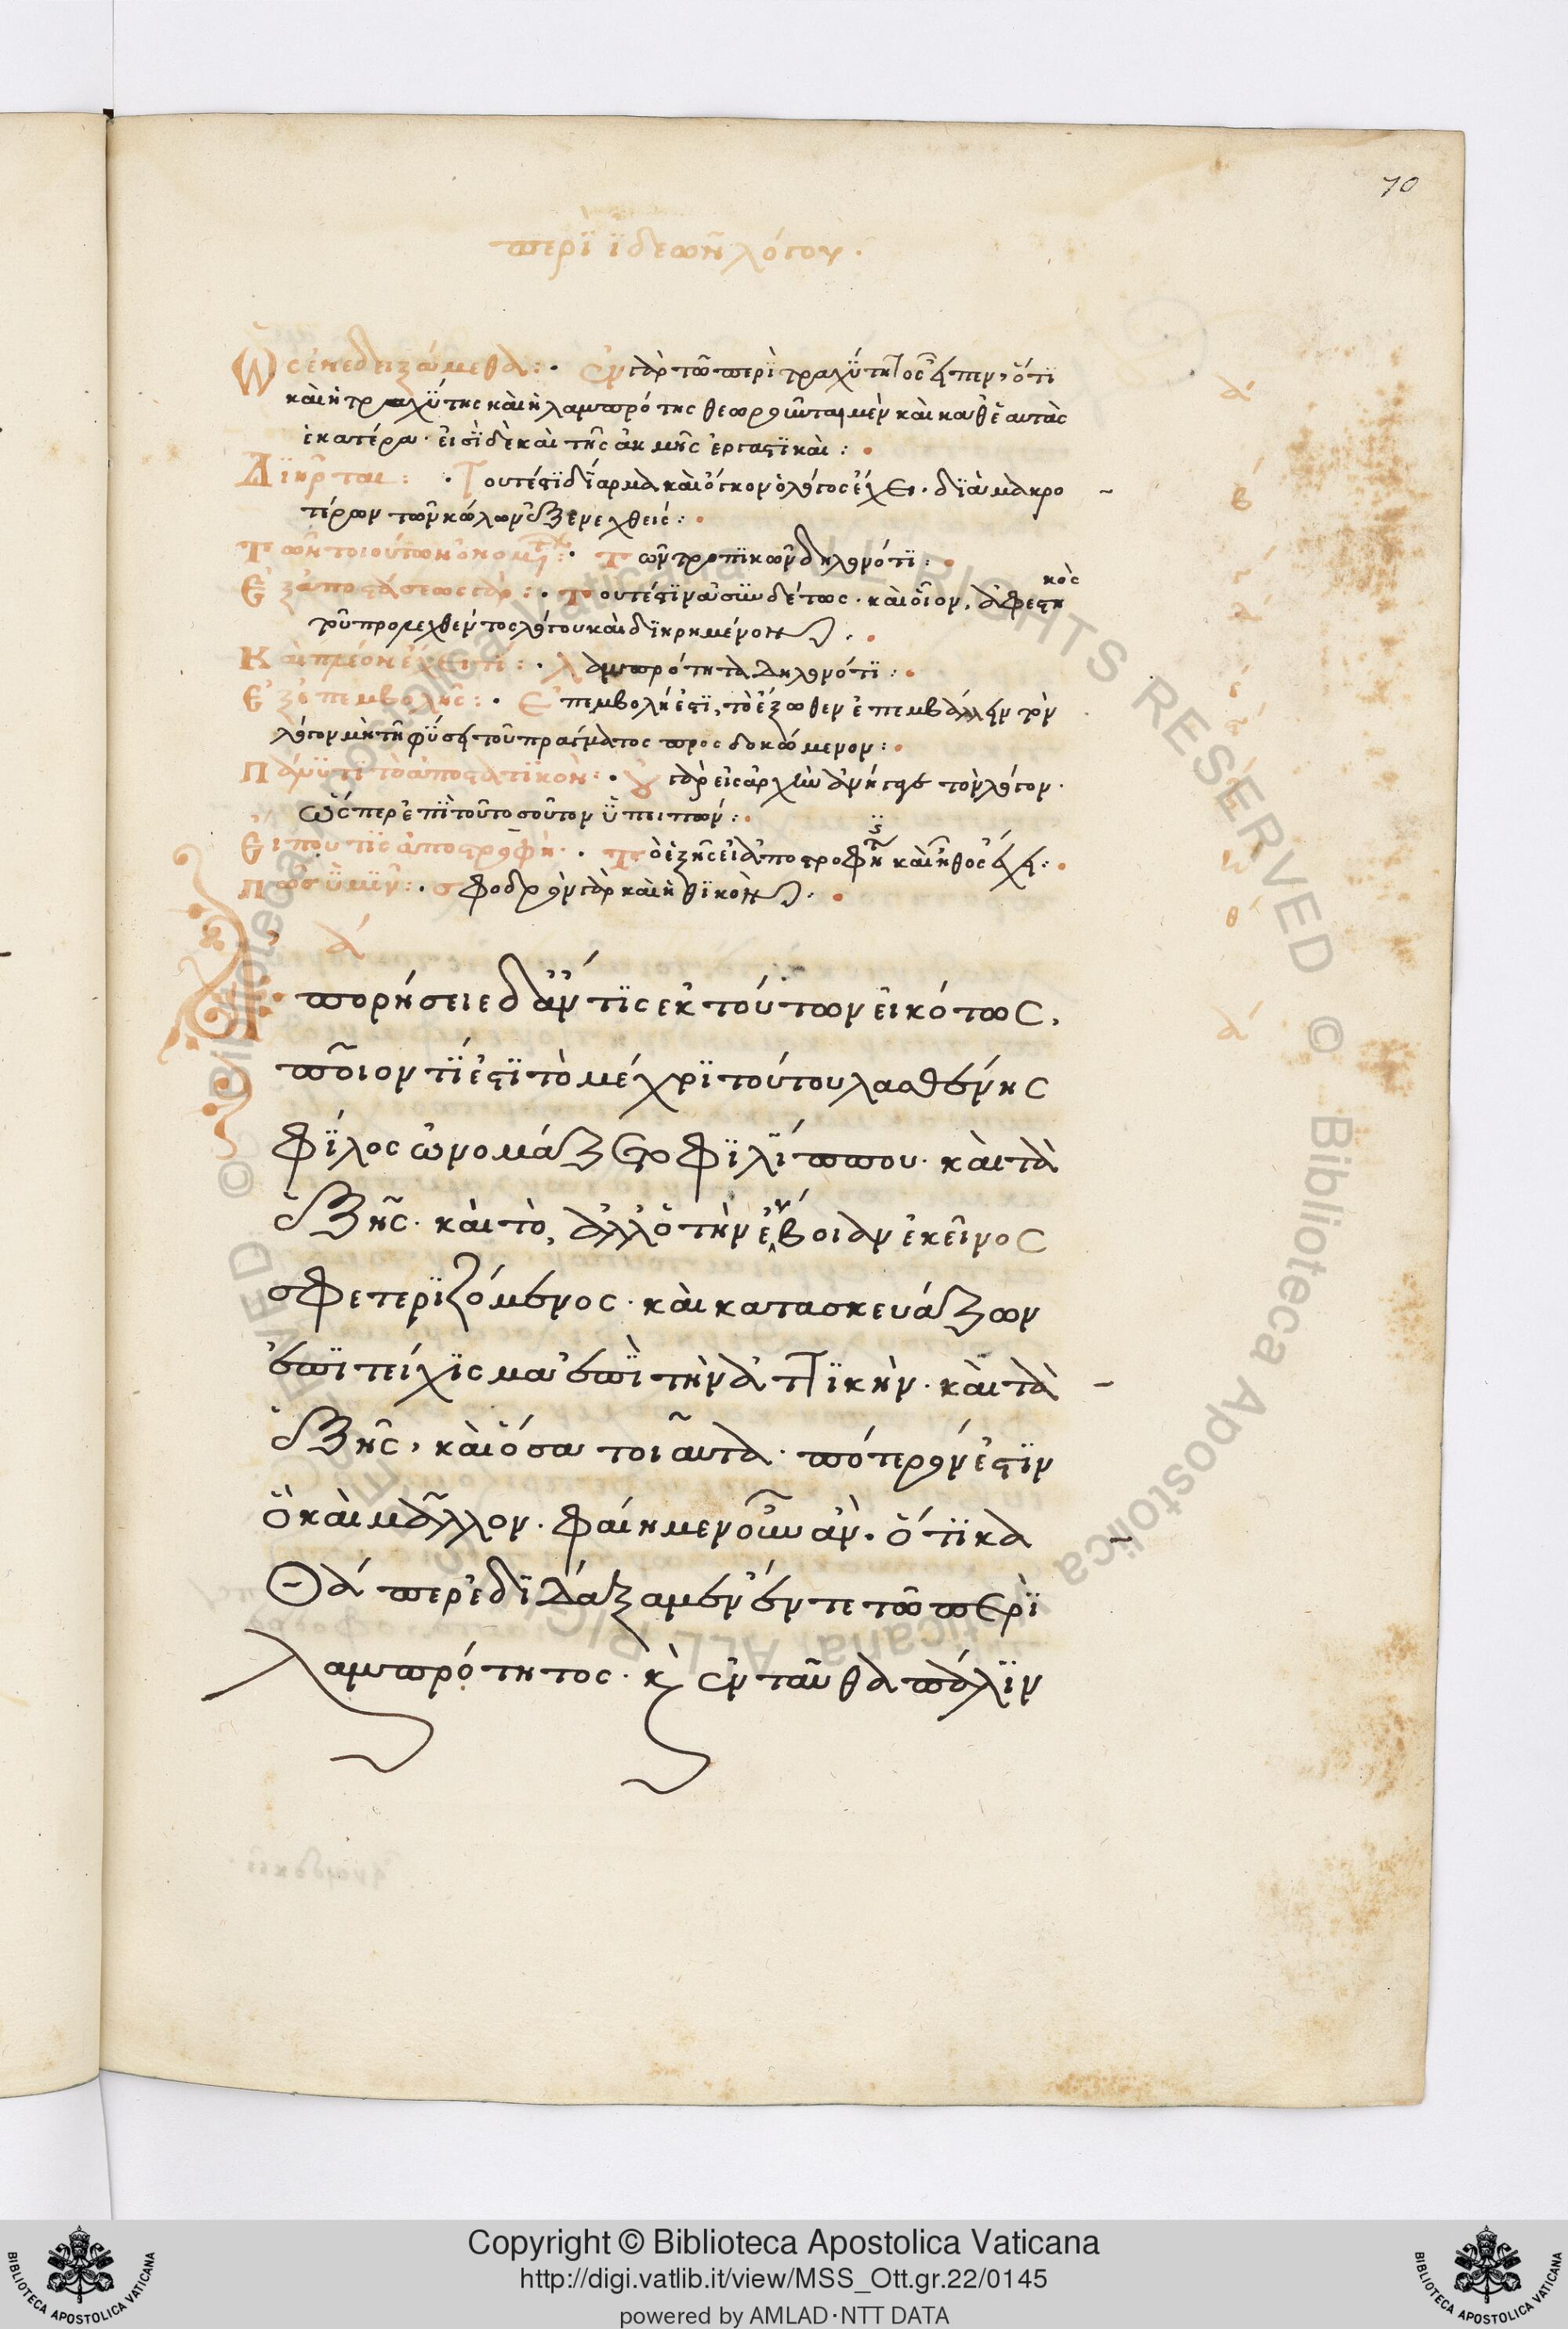 70
περὶ ἰδεῶν λόγου.
Ὡς ἐπεδειξάμεθα: · ἐν γὰρ τῶ περὶ τραχύτητος εἶπεν, ὅτι
καὶ ἡ τραχύτης καὶ ἡ λαμπρότης θεωροῦνται μὲν καὶ καθ' ἑαυτὰς
ἑκατέρα · εἰσὶ δὲ καὶ τῆς ἀκμῆς ἐργαστικαὶ : ·
Διῆρται : · Τουτέστι δίαρμα καὶ ὄγκον ὁ λόγος ἔχει · διὰ μακρο
τέρων τῶν κώλων ἐξενεχθείς : ·
Τῶν τοιούτων ὀνομάτων : · Τῶν τροπικῶν δηλονότι : ·
Ἐξ ἀποστάσεως γὰρ : · Τουτέστιν ἀσυνδέτως · καὶ οἷον, ἀφεστηκὸς
τοῦ προλεχθέντος λόγου καὶ διῃρημένον : ·
Καὶ πλέον ἔχει τι : · λαμπρότητα δηλονότι : ·
Ἐξ ἐπεμβολῆς : · Ἐπεμβολή ἐστι, τὸ ἔξωθεν ἐπεμβάλλειν τὸν
λόγον μὴ τῆ φύσει τοῦ πράγματος προσδοκώμενον : ·
Πάνυ τι τὸ ἀποστατικὸν : · οὐ γὰρ εἰς ἀρχὴν ἀνήγαγε τὸν λόγον ·
ὥσπερ ἐπὶ τοῦ τοσοῦτον ὑπειπών : ·
Εἴπου τις ἀποστροφὴ · · Τὸ ἑξῆς εἰ ἀποστροφὴν καὶ ἦθος ἔχει : ·
Πῶς ὑμῖν : · σφοδρὸν γὰρ καὶ ἠθικὸν : ·
πορήσειε δ' ἄν τις ἐκ τούτων εἰκότως,
ποῖον τί ἐστι τὸ μέχρι τούτου λασθένης
φίλος ὠνομάζετο φιλίππου · καὶ τὰ
ἑξῆς · καὶ τὸ, ἀλλ' ὁ τὴν εὔβοιαν ἐκεῖνος
σφετεριζόμενος · καὶ κατασκευάζων
ἐπιτείχισμα ἐπὶ τὴν ἀττικὴν · καὶ τὰ
ἑξῆς, καὶ ὅσα τοιαῦτα · πότερόν ἐστιν
ὃ καὶ μᾶλλον · φαίημεν οὖν ἂν · ὅτι κα
θάπερ ἐδιδάξαμεν ἔν τε τῶ περὶ
λαμπρότητος · κ(αὶ) ἐνταῦθα πάλιν
Copyright © Biblioteca Apostolica Vaticana
http://digi.vatlib.it/view/MSS_Ott.gr.22/0145
powered by AMLAD·NTT DATA